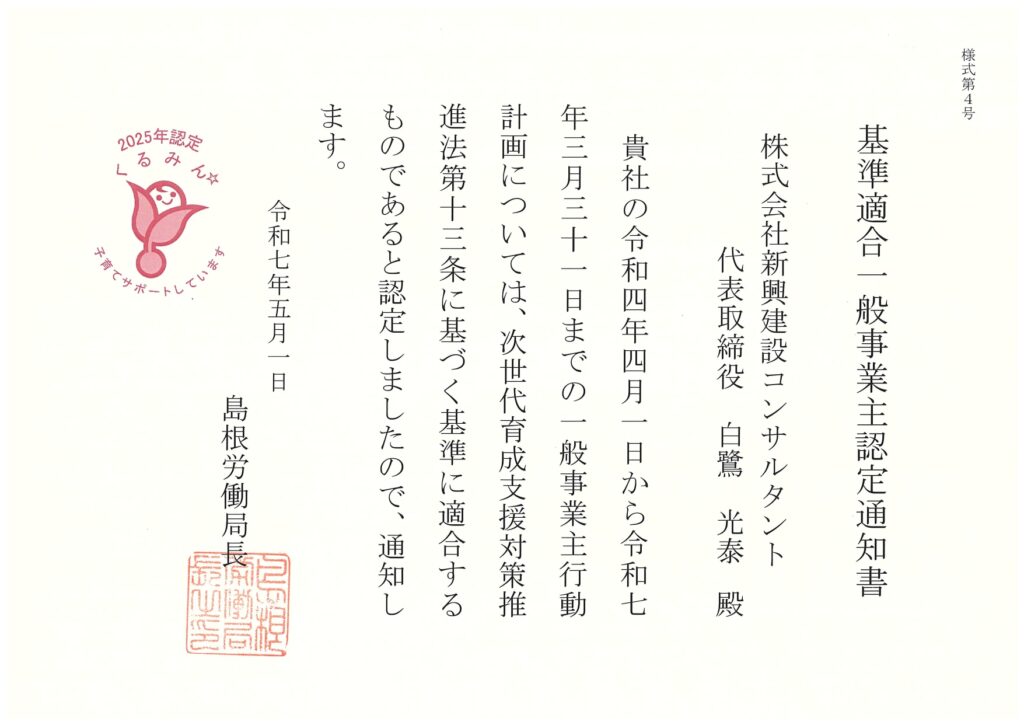 様式第4号
基準適合一般事業主認定通知書
株式会社新興建設コンサルタント
代表取締役　白鷺　光泰　殿
貴社の令和四年四月一日から令和七
年三月三十一日までの一般事業主行動
計画については、次世代育成支援対策推
進法第十三条に基づく基準に適合する
ものであると認定しましたので、通知し
ます。
令和七年五月一日
島根労働局長
島根
労働局
長之印
2025年認定
くるみん☆
子育てサポートしています